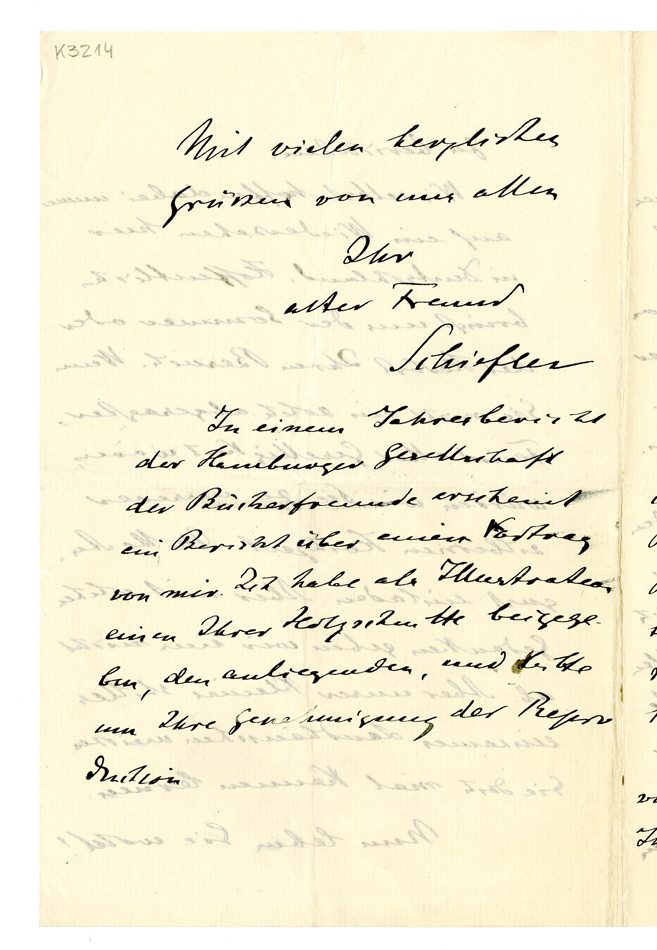 K3214
Mit vielen herzlichen
Grüssen von uns allen
Ihr
alter Freund
Schiefler
In einem Jahresbericht
der Hamburger Gesellschaft
der Bücherfreunde erscheint
ein Bericht über einen Vortrag
von mir. Ich habe als Illustration
einen Ihrer Holzschnitte beigege-
ben, den anliegenden, und bitte
um Ihre Genehmigung der Repro
duction